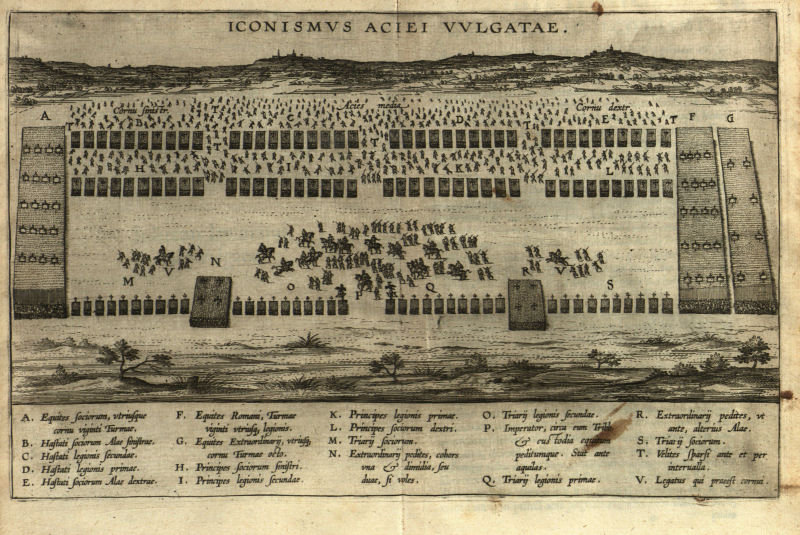 ICONISMVS ACIEI VVLGATAE.
Cornu sinistr.
Acies media
Cornu dextr.
A
F
G
T
B
T
C
T
D
T
E
T
T
T
T
H
I
K
L
M
V
N
O
P
Q
R
V
S
A. Equites sociorum, vtriusque
cornu viginti Turmae.
B. Hastati sociorum Alae sinistrae.
C. Hastati legionis secundae.
D. Hastati legionis primae.
E. Hastati sociorum Alae dextrae.
F. Equites Romani, Turmae
viginti vtriusq, legionis.
G. Equites Extraordinarij, vtriusq,
cornu Turmae octo.
H. Principes sociorum sinistri.
I. Principes legionis secundae.
K. Principes legionis primae.
L. Principes sociorum dextri.
M. Triarij sociorum.
N. Extraordinarij pedites, cohors
vna & dimidia, seu
duae, si voles.
O. Triarij legionis secundae.
P. Imperator, circa eum Tribb.
& custodia equitum
peditumque. Sunt ante
aquilas.
Q. Triarij legionis primae.
R. Extraordinarij pedites, vt
ante, alterius Alae.
S. Triarij sociorum.
T. Velites sparsi ante et per
interualla.
V. Legatus qui praeest cornui.